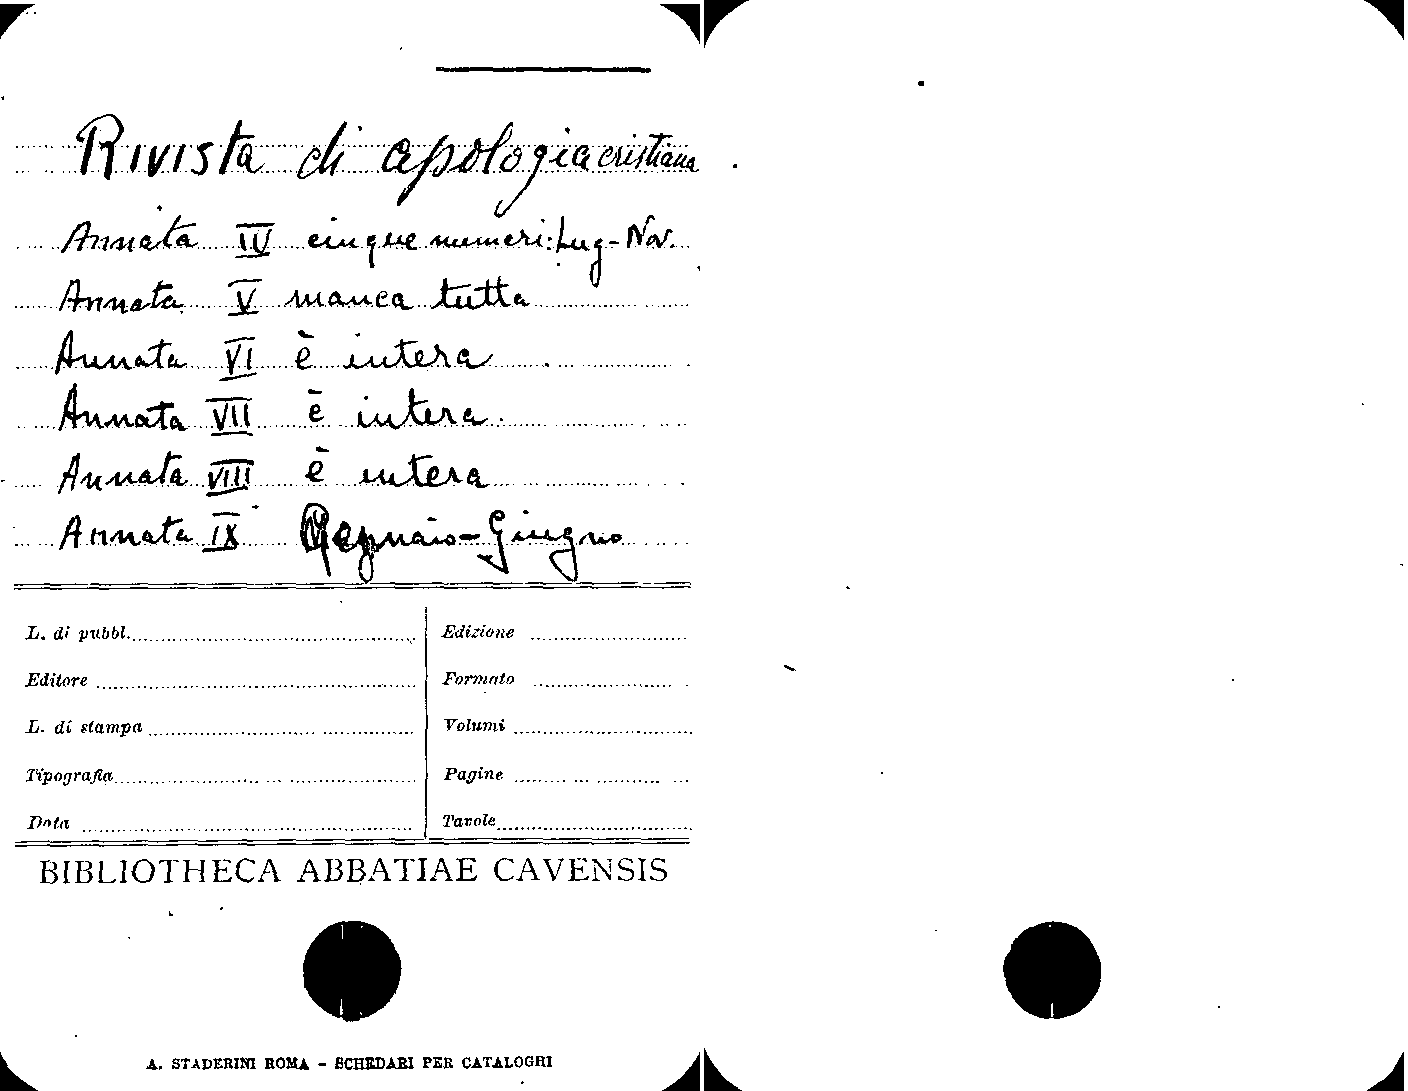 Rivista di apologia cristiana
Annata IV cinque numeri: Lug-Nov.
Annata V manca tutta
Annata VI è intera
Annata VII è intera.
Annata VIII è intera
Annata IX Gennaio-Giugno
L. di pubbl.
Edizione
Editore
Formato
L. di stampa
Volumi
Tipografia
Pagine
Data
Tavole
BIBLIOTHECA ABBATIAE CAVENSIS
A. STADERINI ROMA - SCHEDARI PER CATALOGHI